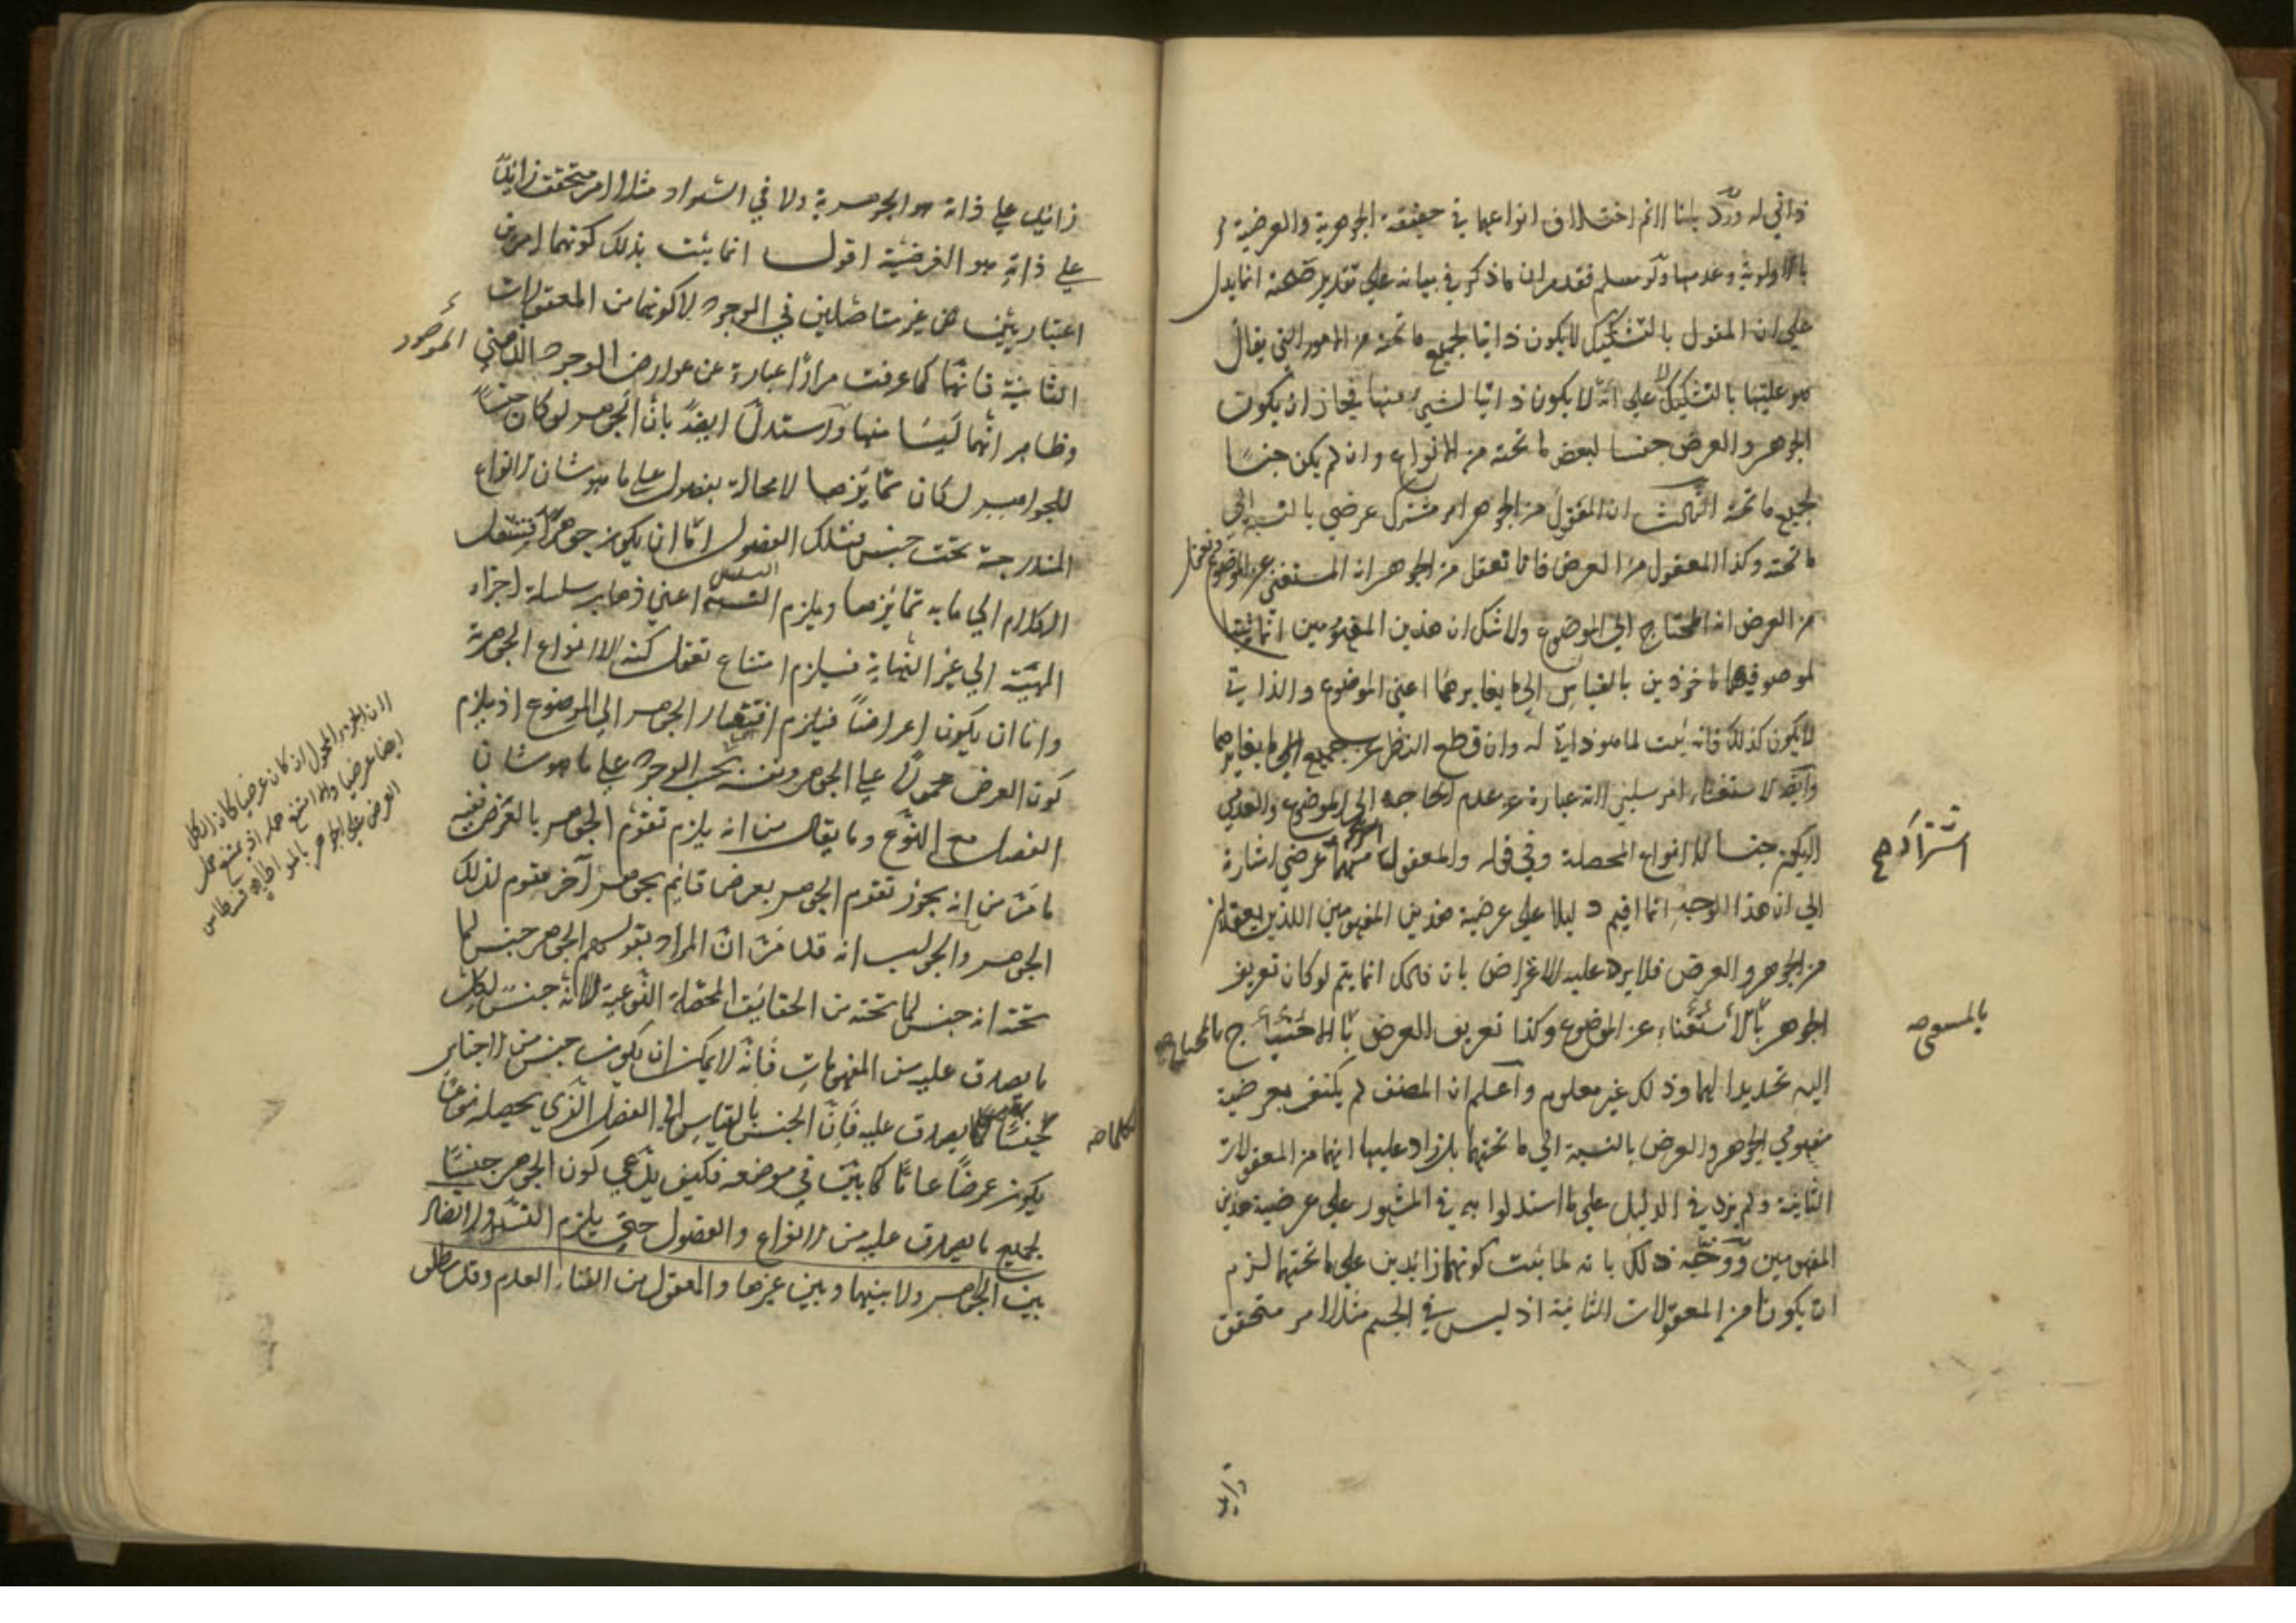 ذاتي له ورد بانا لانم اختلاف انواعهما في حقيقة الجوهرية والعرضية
بالاولوية وعدمها ولو سلم فقد مر ان ما ذكر في بيانه على تقدير صحته انما يدل
على ان المقول بالتشكيك لا يكون ذاتيا لجميع ما تحته من الامور التي يقال
هو عليها بالتشكيك لا على انه لا يكون ذاتيا لشيء منها فجاز ان يكون
الجوهر والعرض جنسا لبعض ما تحته من الانواع وان لم يكن جنسا
لجميع ما تحته الثالث ان المعقول من الجوهر امر مشترك عرضي بالنسبة الى
ما تحته وكذا المعقول من العرض فانا نعقل من الجوهر انه المستغني عن الموضوع ونعقل
من العرض انه المحتاج الى الموضوع ولا شك ان هذين المفهومين انما يثبتا
لموصوفيهما ماخوذين بالقياس الى ما يغايرهما اعني الموضوع والذاتي
لا يكون كذلك فانه يثبت لما هو ذاتي له وان قطع النظر عن جميع ما يغايرهما
وايضا الاستغناء امر سلبي لانه عبارة عن عدم الحاجة الى الموضوع والعدمي
لا يكون جنسا للانواع المحصلة وفي قوله والمعقول اشتراكه عرضي اشارة
اشتراكه صح
الى ان هذا الوجه انما اقيم دليلا على عرضية هذين المفهومين اللذين يعقلان
من الجوهر والعرض فلا يرد عليه الاعتراض بان ذلك انما يتم لو كان تعريف
الجوهر بالاستغناء عن الموضوع وكذا تعريف العرض بالاحتياج
اليه تحديدا لهما وذلك غير معلوم واعلم ان المصنف لم يكتف بعرضية
مفهومي الجوهر والعرض بالنسبة الى ما تحتهما بل زاد عليها انهما من المعقولات
الثانية ولم يزد في الدليل على ما استدلوا به في المشهور على عرضية هذين
المفهومين ووجه ذلك بانه لما يثبت كونهما زائدين على ما تحتهما لزم
ان يكونا من المعقولات الثانية اذ ليس في الجسم مثلا امر متحقق
زائد على ذاته هو الجوهرية ولا في السواد مثلا امر متحقق زائد
على ذاته هو العرضية اقول انما يثبت بذلك كونهما امرين
اعتباريين غير متاصلين في الوجود لا كونهما من المعقولات
الثانية فانها كما عرفت مرارا عبارة عن عوارض الوجود الذهني
وظاهر انهما ليسا منها واستدل ايضا بان الجوهر لو كان جنسا
للجواهر لكان تمايزها لا محالة بفصول على ما هو شان الانواع
المندرجة تحت جنس فتلك الفصول اما ان يكون جوهرا فينتقل
الكلام الى ما به تمايزها ويلزم التسلسل اعني ذهاب سلسلة اجزاء
المهية الى غير النهاية فيلزم امتناع تعقل كنه الانواع الجوهرية
واما ان يكون اعراضا فيلزم افتقار الجوهر الى الموضوع اذ يلزم
كون العرض محمولا على الجوهر ونفسه بحسب الوجود على ما هو شان
الفصل مع النوع وما يقال من انه يلزم تقوم الجوهر بالعرض ففيه
ما مر من انه يجوز تقوم الجوهر بعرض قائم بجوهر آخر مقوم لذلك
الجوهر والجواب انه قد مر ان المراد بقولهم الجوهر جنس لما
تحته انه جنس لما تحته من الحقايق المحصلة النوعية لا انه جنس لكل
ما يصدق عليه من المفهومات فانه لا يمكن ان يكون جنس من الاجناس
جنسا لكل ما يصدق عليه فان الجنس بالقياس الى الفصل الذي يحصله نوعا
يكون عرضا عاما كما بين في موضعه فكيف يدعي كون الجوهر جنسا
لجميع ما يصدق عليه من الانواع والفصول حتى يلزم التسلسل
بين الجواهر ولا بينها وبين غيرها والمعقول من الفناء العدم وقد يطلق